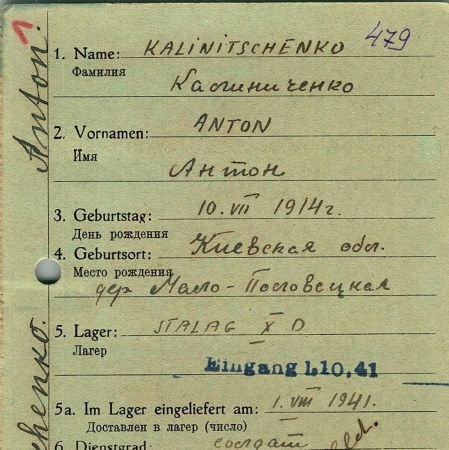 1
479
1. Name: KALINITSCHENKO
Фамилия
Калиниченко
2. Vornamen: ANTON
Имя
Антон
3. Geburtstag: 10. VII 1914 г.
День рождения
4. Geburtsort: Киевская обл.
Место рождения
дер Мало-Половецкая
5. Lager: STALAG X D
Лагер
Eingang 1.10.41
5a. Im Lager eingeliefert am: 1. VIII 1941.
Доставлен в лагер (число)
6. Dienstgrad: солдат
Anton.
chenko.